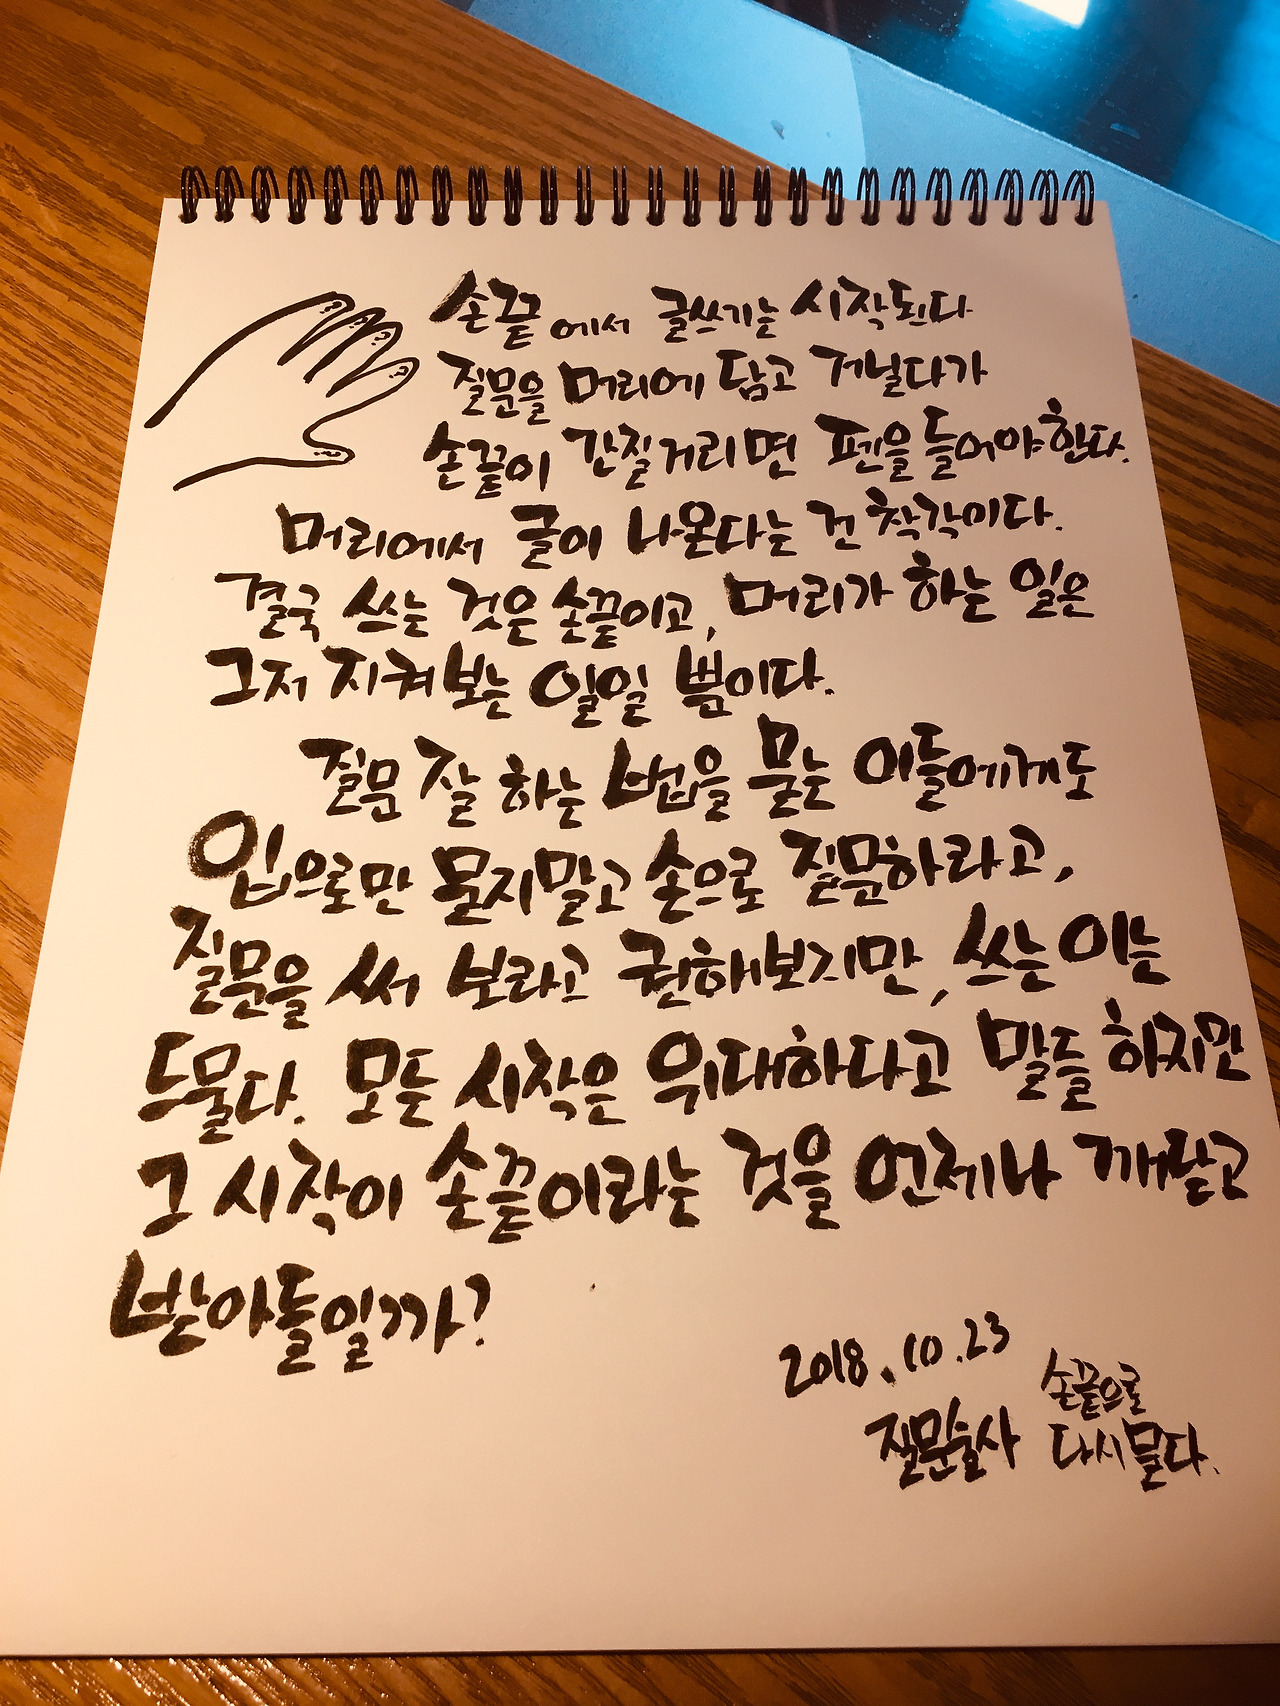 손끝에서 글쓰기는 시작된다
질문을 머리에 담고 거닐다가
손끝이 간질거리면 펜을 들어야 한다.
머리에서 글이 나온다는 건 착각이다.
결국 쓰는 것은 손끝이고, 머리가 하는 일은
그저 지켜보는 일일 뿐이다.
질문 잘 하는 법을 묻는 이들에게도
입으로만 묻지말고 손으로 질문하라고,
질문을 써 보라고 권해보지만, 쓰는 이는
드물다. 모든 시작은 위대하다고 말들 하지만
그 시작이 손끝이라는 것을 언제나 깨닫고
받아들일까?
2018.10.23
질문술사
손끝으로
다시 묻다.